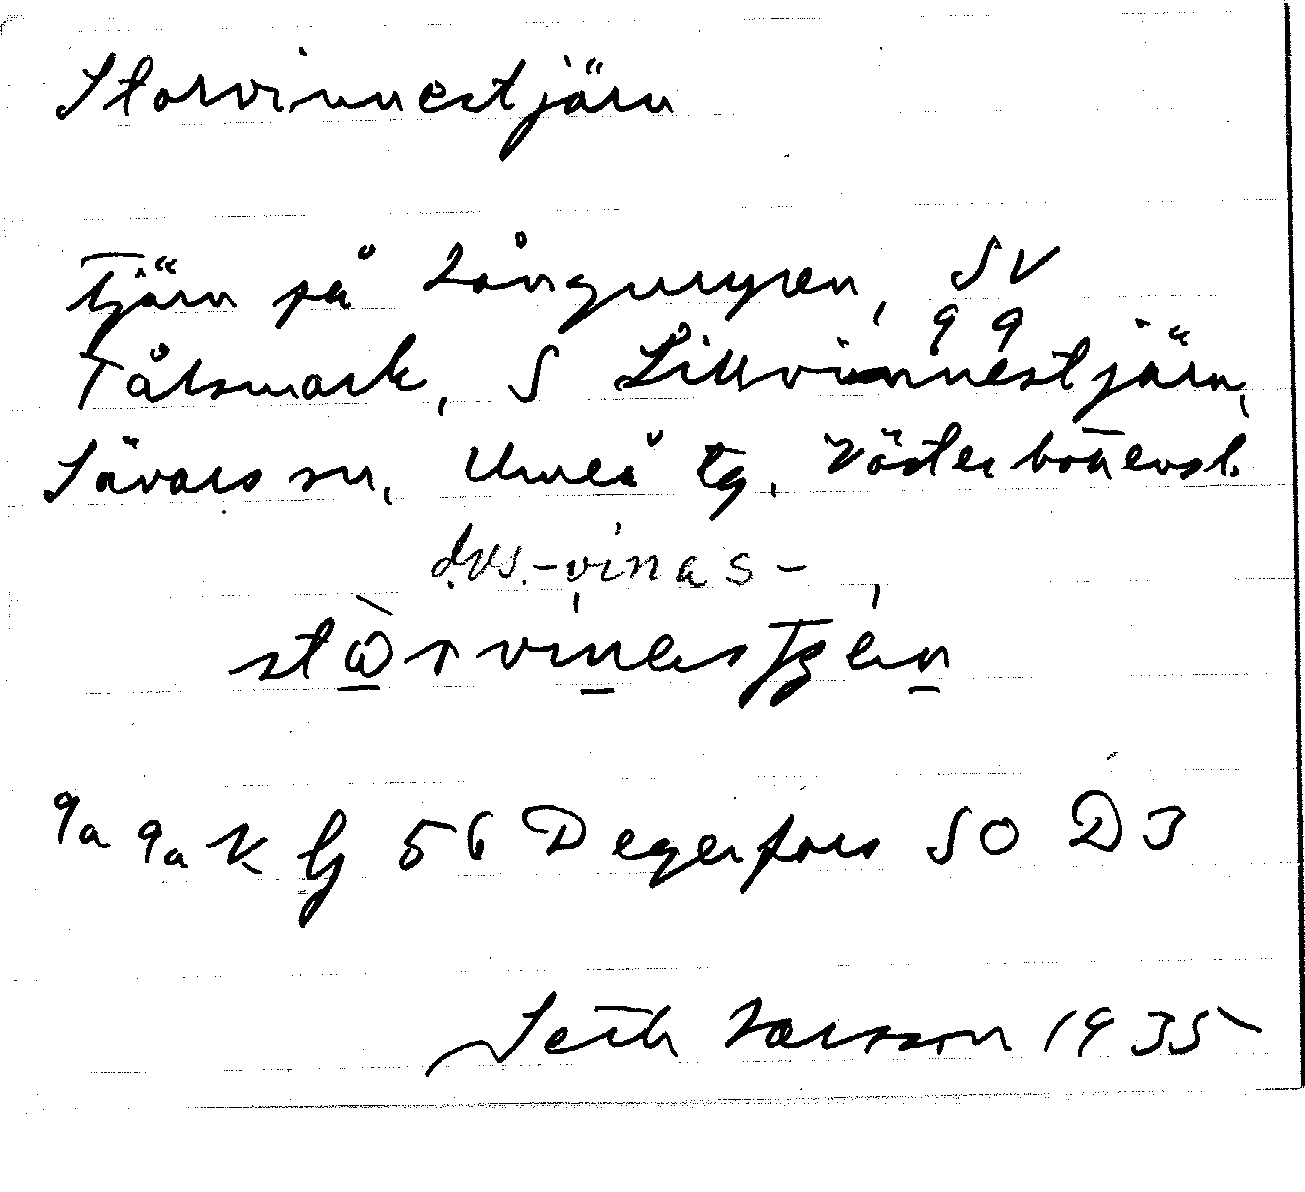 Storvinnestjärn
Tjärn på Långmyren, SV
Tålsmark, S Lillvinnestjärn,
Sävars sn, Umeå tg. Västerbottensl.
dvs. -vinas-
99
56 Degerfors SO D3
Seth Larsson 1935